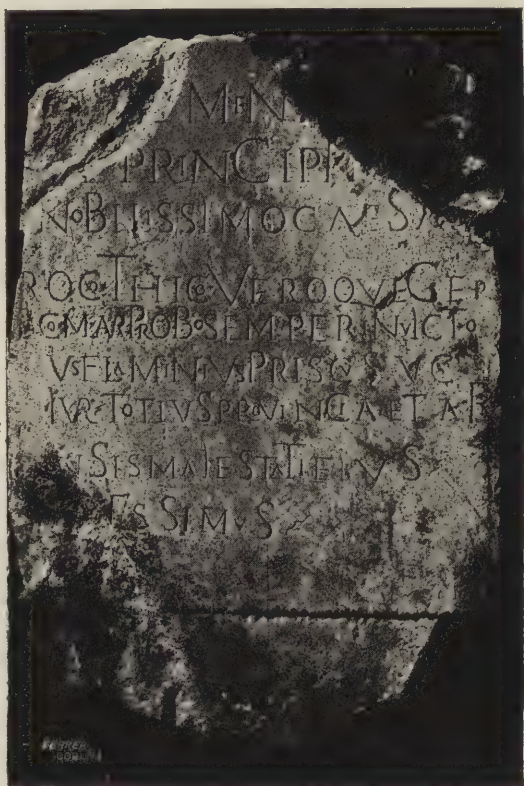 PRINCIPI
NOBILISSIMO CAES
GOTHICO VEROQVE GER
AC M AVR PROBO SEMPER INVICTO
VS FLAMINIVS PRISCVS V C
IVR TOTIVS PROVINCIAE TAR
SIS MAIESTATI EIVS
SSIMVS